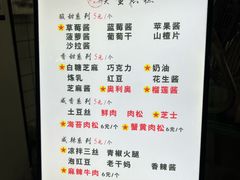 酸甜系列 5元/个
★草莓酱 蓝莓酱 苹果酱
菠萝酱 葡萄干 山楂片
沙拉酱
香甜系列 5元/个
★白糖芝麻 巧克力 ★奶油
炼乳 红豆 花生酱
芝麻酱 ★奥利奥 ★榴莲酱
咸香系列 5元/个
土豆丝 鲜肉 肉松 ★芝士
★海苔肉松 6元/个 ★蟹黄肉松 6元/个
咸辣系列 5元/个
★凉拌三丝 青椒火腿
泡豇豆 老干妈 香辣酱
★麻辣牛肉 6元/个